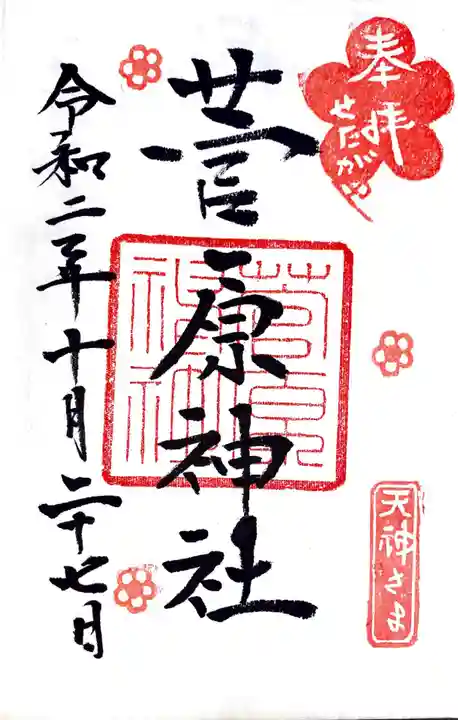 奉拝
せたがや
天神さま
菅原神社
菅原神社
令和二年十月二十七日